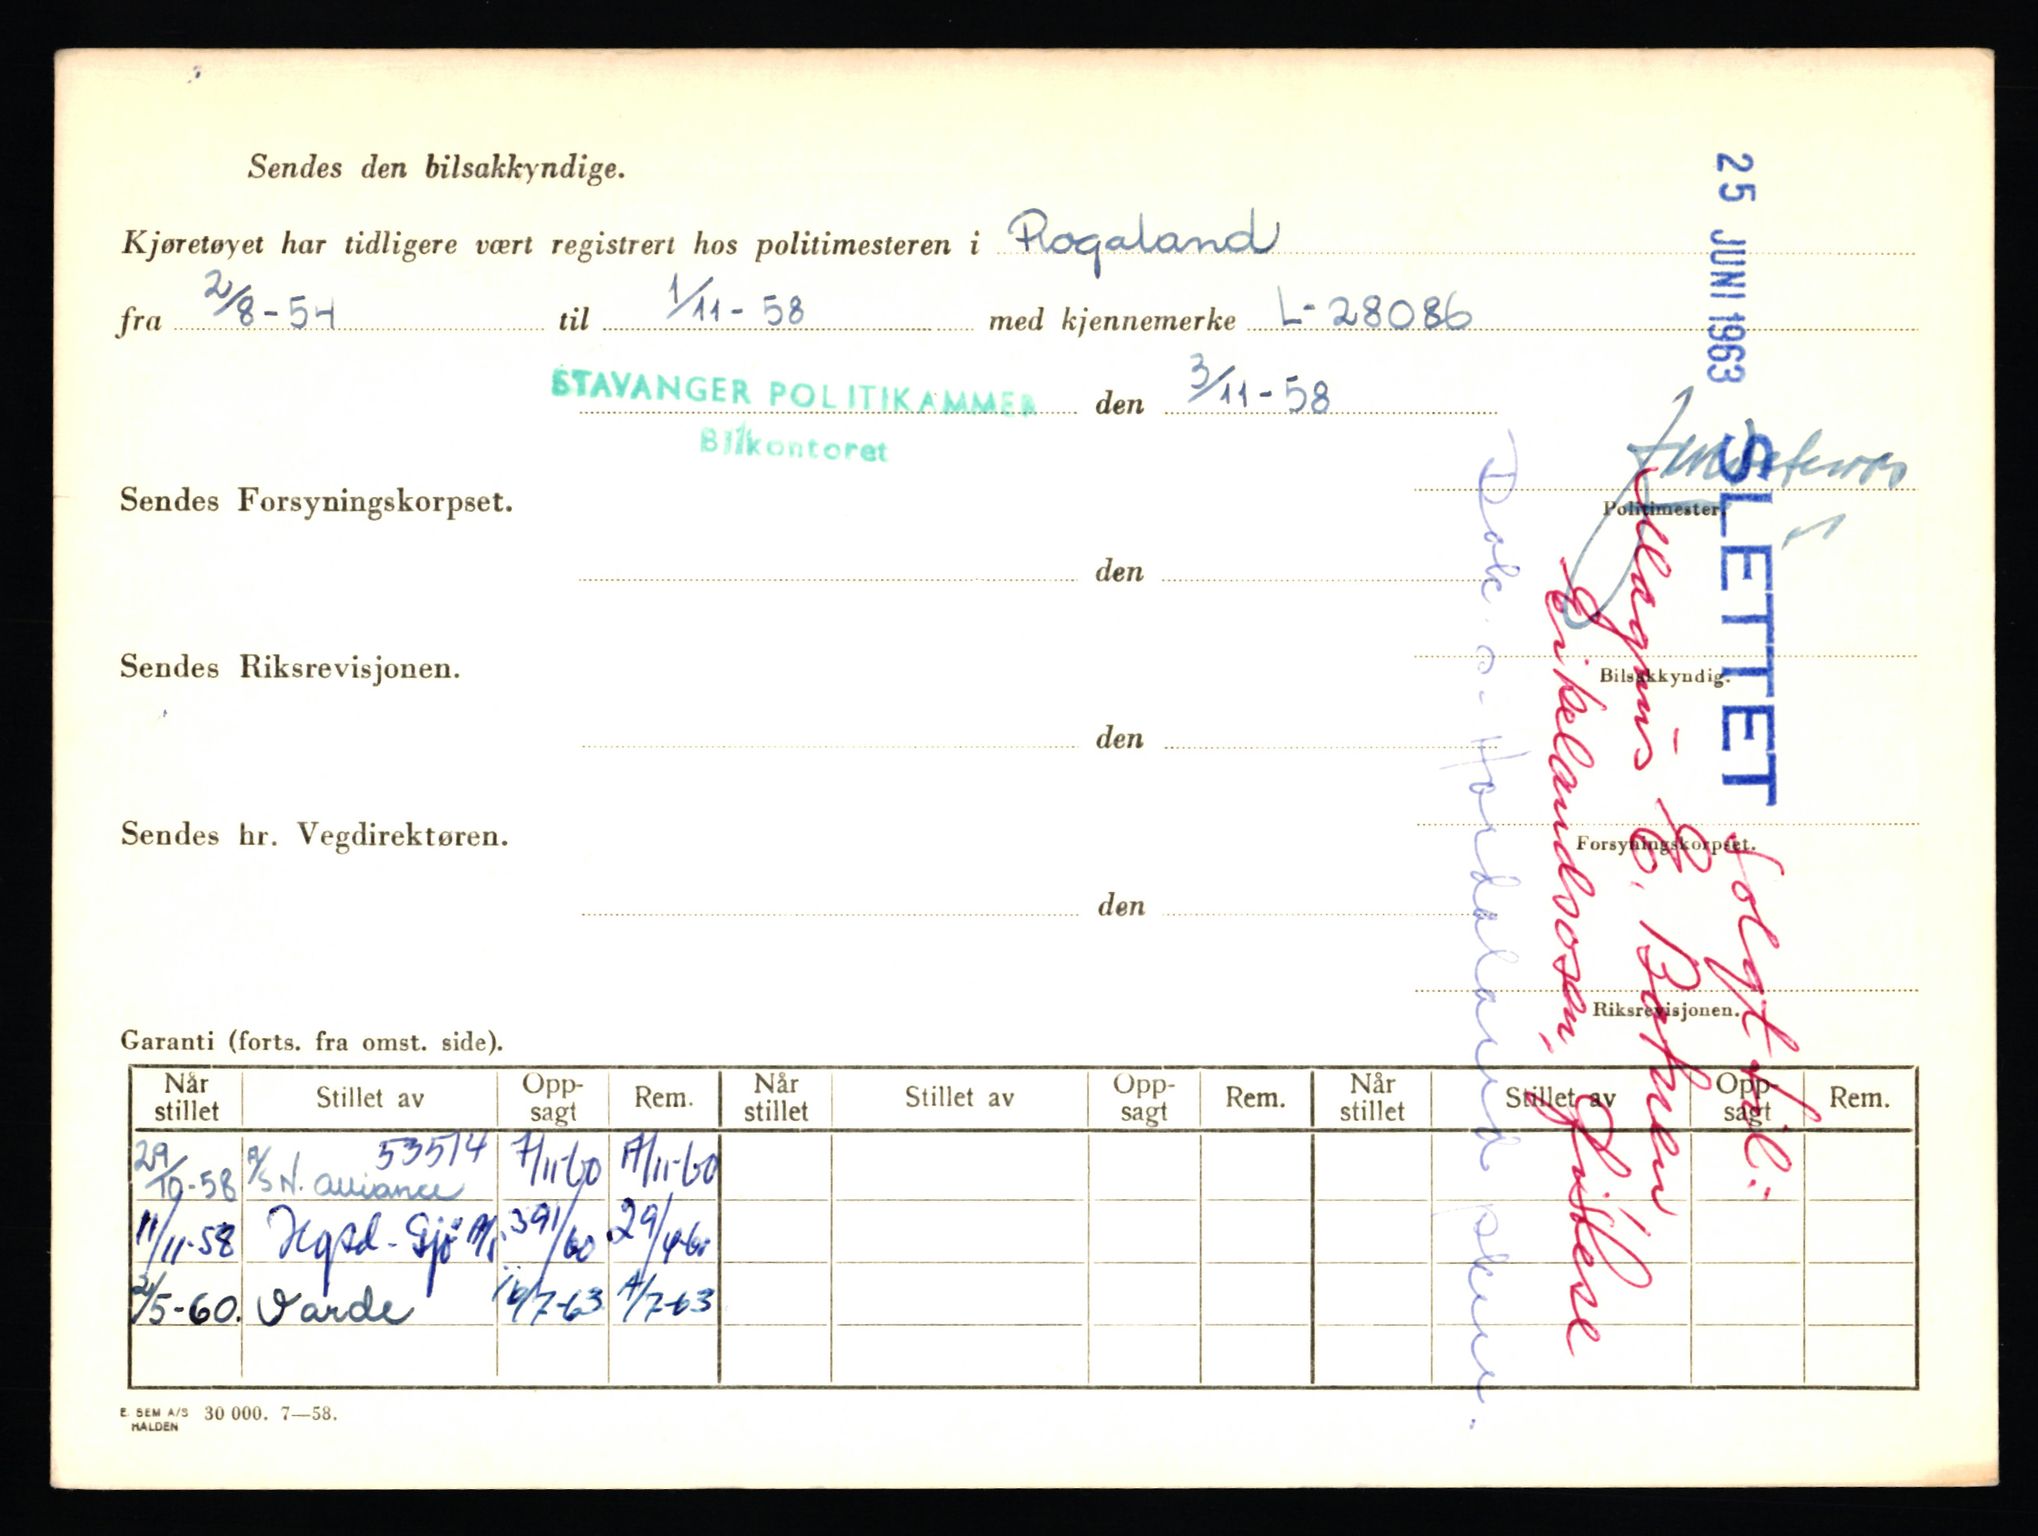 Sendes den bilsakkyndige.
Kjøretøyet har tidligere vært registrert hos politimesteren i Rogaland
fra 2/8-54 til 1/11-58 med kjennemerke L-28086
STAVANGER POLITIKAMMER den 3/11-58
Bilkontoret
Sendes Forsyningskorpset.
Politimester.
den
Sendes Riksrevisjonen.
Bilsakkyndig.
den
Sendes hr. Vegdirektøren.
Forsyningskorpset.
den
Riksrevisjonen.
25 JUNI 1963 SLETTET
Solgt til:
Magnus E.
Eikelandsosen,
Dok. o- Hordaland
Garanti (forts. fra omst. side).
Når stillet Stillet av Opp-sagt Rem. Når stillet Stillet av Opp-sagt Rem. Når stillet Stillet av Opp-sagt Rem.
29/10-58 A/S N. Alliance 53514 7/11-60
11/11-58 391/60 29/4-60
2/5-60. Varde 16/7-63
E. SEM A/S HALDEN 30 000. 7—58.